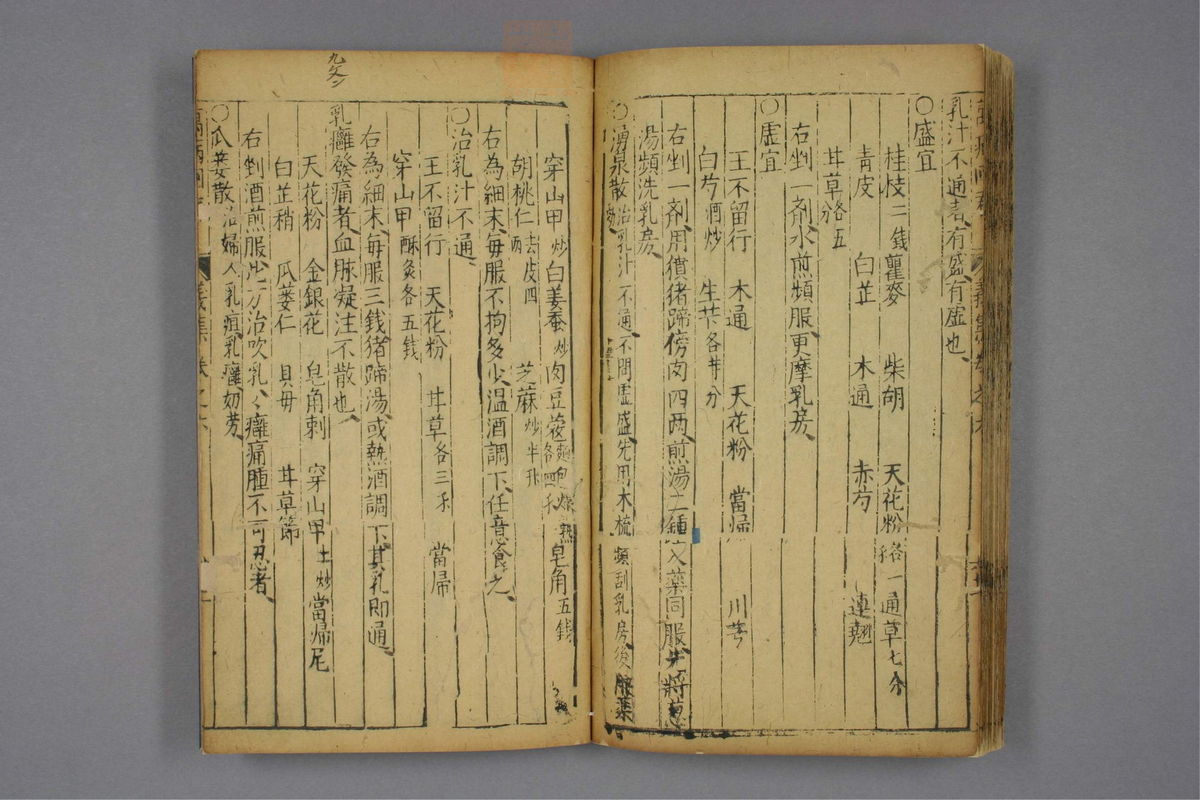 乳汁不通者、有盛有虚也、
〇盛宜
桂枝二錢 瞿麥 柴胡 天花粉各一 通草七分
青皮 白芷 木通 赤芍 連翹
甘草各五分
右剉一剤水煎頻服更摩乳房、
〇虚宜
王不留行 木通 天花粉 當帰 川芎
白芍酒炒 生芐各廾分
右剉一剤、用㹠猪蹄傍肉四两、煎湯二鍾、入薬同服、先將葱
湯頻洗乳房、
〇湧泉散 治乳汁不通、不問虚盛先用木梳頻刮乳房後服薬
穿山甲炒 白姜蚕炒 肉豆蔲麵包煨熟各四 皂角五錢
胡桃仁去皮四 芝麻炒半升
右為細末、毎服不拘多少、温酒調下、任意食之、
〇治乳汁不通、
王不留行 天花粉 甘草各三 當帰
穿山甲酥炙各五錢
右為細末、毎服三錢、猪蹄湯、或熱酒調下、其乳即通、
乳癰發痛者、血脉凝注不散也、
天花粉 金銀花 皂角刺 穿山甲土炒 當帰尾
白芷稍 瓜蒌仁 貝母 甘草節
右剉酒煎服、此方治吹乳、乳癰痛腫不可忍者、
〇瓜蒌散 治婦人乳疽乳癰奶劳、